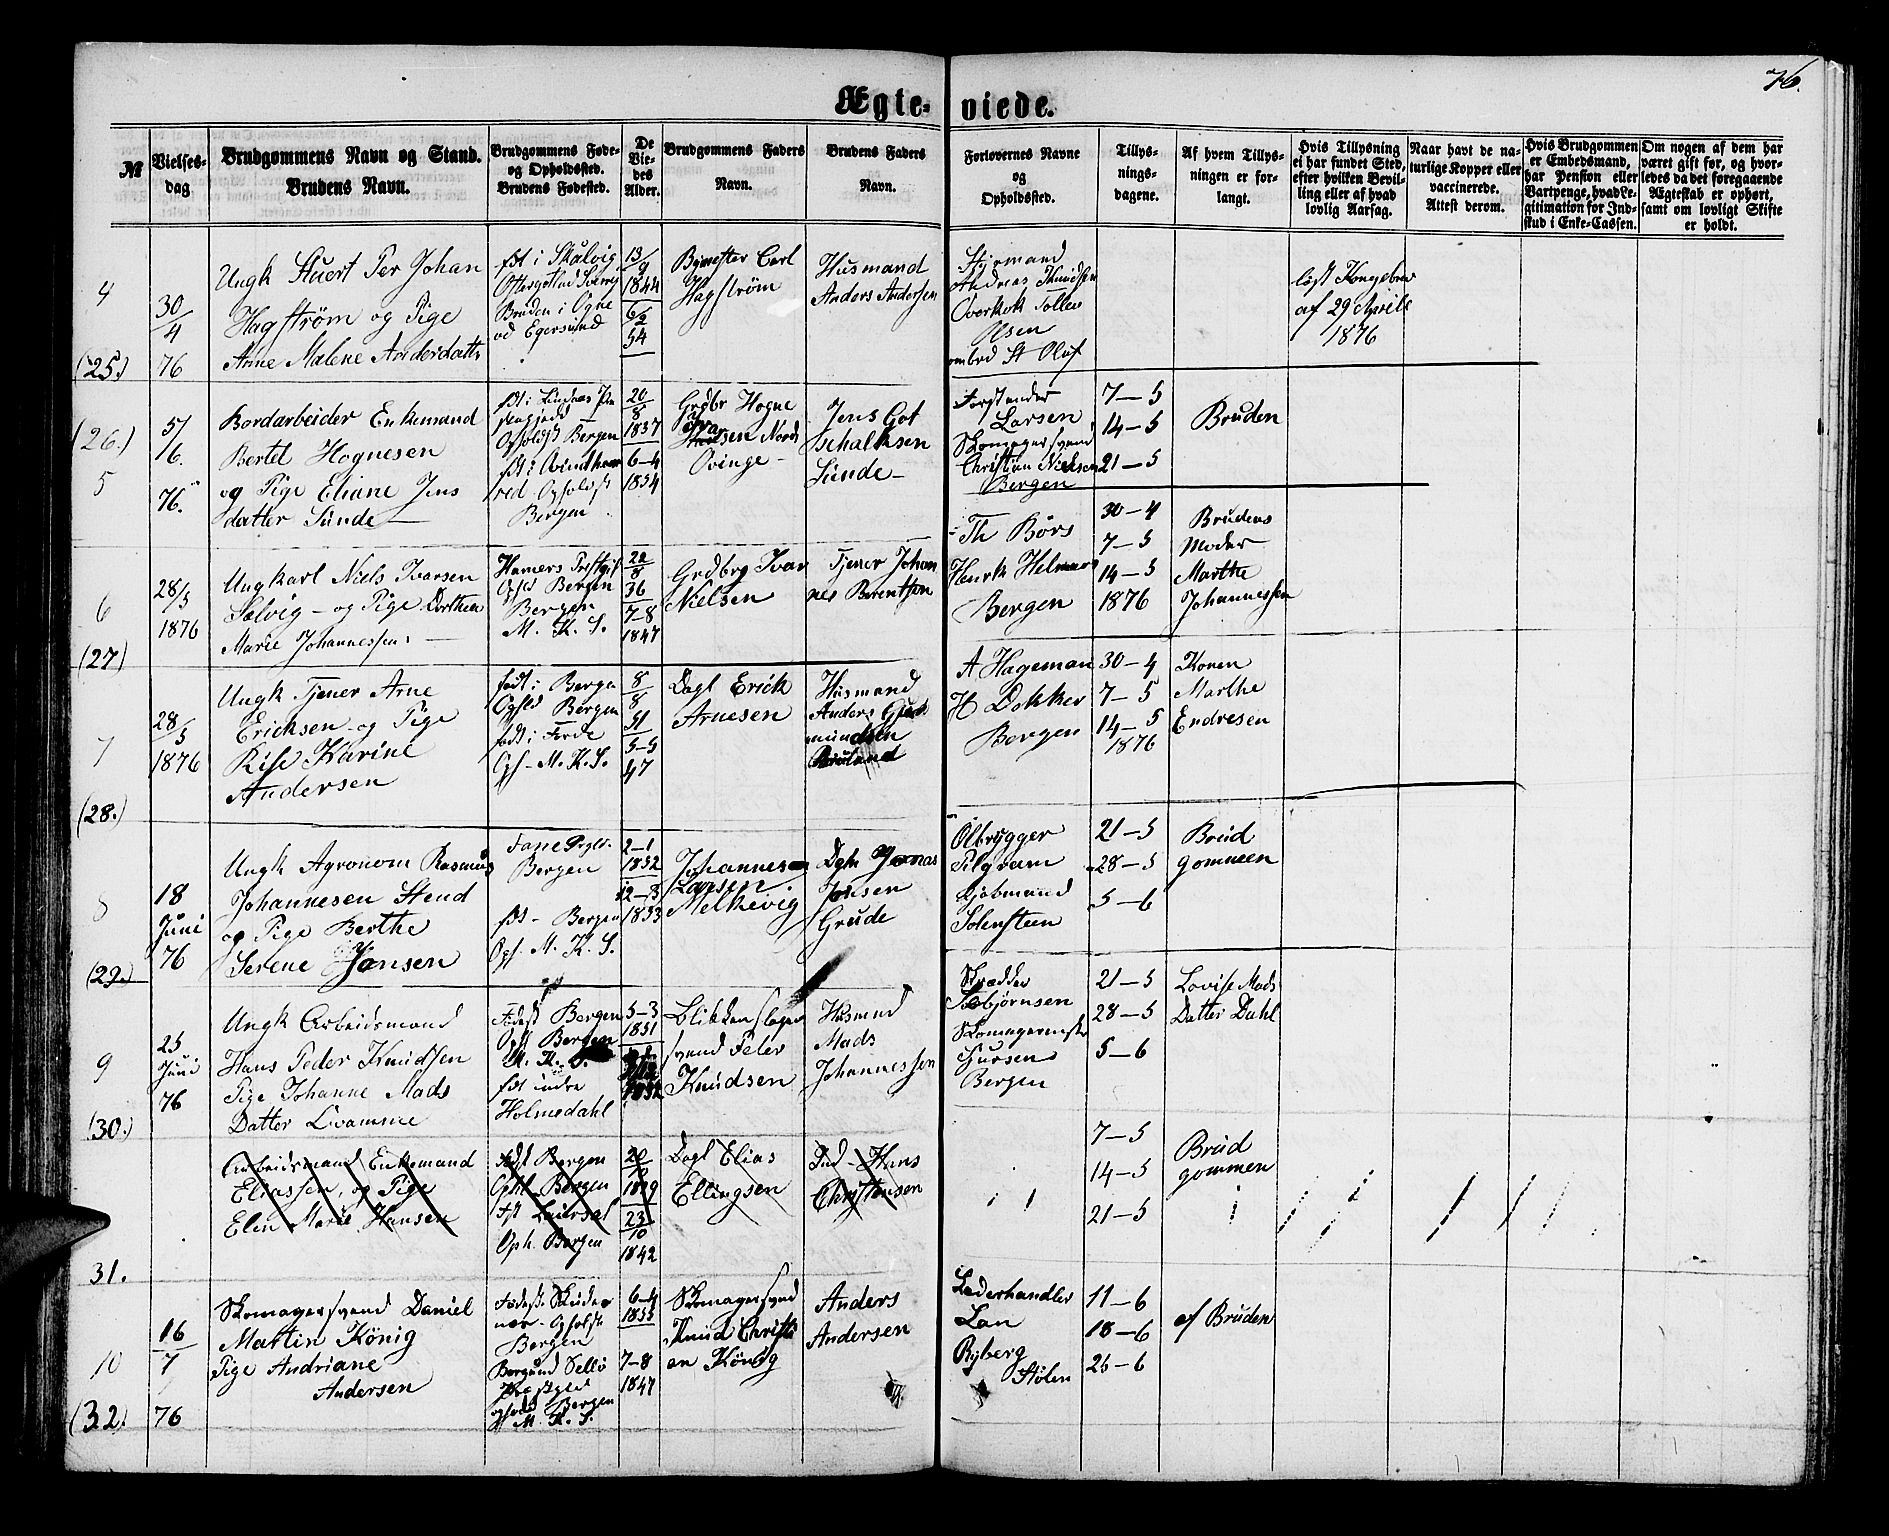 76.
Ægte-viede.
№
Vielses-
dag
Brudgommens Navn og Stand.
Brudens Navn.
Brudgommens Føde-
og Opholdssted.
Brudens Fødested.
De
Vie-
des
Alder.
Brudgommens Faders
Navn.
Brudens Faders
Navn.
Forlovernes Navne
og
Opholdssted.
Tillys-
nings-
dagene.
Af hvem Tillys-
ningen er for-
langt.
Hvis Tillysning
ei har fundet Sted,
efter hvilken Bevil-
ling eller af hvad
lovlig Aarsag.
Naar havt de na-
turlige Kopper eller
vaccinerede.
Attest derom.
Hvis Brudgommen
er Embedsmand,
har Pension eller
Vartpenge, hvad Le-
gitimation for Ind-
skud i Enke-Cassen.
Om nogen af dem har
været gift før, og hvor-
ledes da det foregaaende
Ægteskab er ophørt,
samt om lovligt Skifte
er holdt.
4
(25.)
30
4
76
Ungk Stuert Per Johan
Hagstrøm og Pige
Anne Malene Andersdattr
fdt i Skälvig
Bruden i Ogne
ved Egersund
13/
9
1844
6/
2
54
Carl
Hagström
Husmand
Anders Andersen
Styrmand
Andreas Knudsen
Overkok Tollev
Olsen
ombrd St Oluf
løst Kongebrev
af 29 Aprils
1876
(26.)
5
5/
6.
76.
Bordarbeider Enkemand
Bertel Hognesen
og Pige Eliane Jens
datter Sunde
fdt i Lindaas Pre
stegjeld
Opholdst Bergen
Opholdst
Bergen
20
8
1837
6-4
1854
Grdbr Hogne
Nord
Ovinge
Jens Got
schalksen
Sunde
Forstander
Larsen
Skomagersvend
Christian Nielsen
Bergen
7-5
14-5
21-5
Bruden
6
(27)
28/5
1876
Ungkarl Niels Ivarsen
Solvig - og Pige Dorthea
Marie Johannessen
Hamers Prstgj
Ophld Bergen
Bergen
M. K. S.
22
8
36
7-8
1847
Grdbrg Ivar
Nielsen
Tjener Johan
nes Berentsen
Th Børs
Henrk Helmers
Bergen
30-4
7-5
14-5
1876
Brudens
Moder
Marthe
Johannessen
7
(28.)
28/5
1876
Ungk Tjener Arne
Ericksen og Pige
Rise Karine
Andersen
født i Bergen
Ophld Bergen
født i Førde
Oph- M. K. S.
8
8
51
5-5
47
Dagl Erick
Arnesen
Husmand
Anders Gud
mundsen
Bruland
A Hageman
H Dekker
Bergen
30-4
7-5
14-5
1876
Konen
Marthe
Endresen
8
(29.)
18
Juni
76
Ungk Agronom Rasmus
Johannesen Stend
og Pige Berthe
Serene Jonsen
Fane Ophld.
Bergen
fdt - Bergen
Oph. M. K. S.
2-1
1852
12-8
1853
Johannes
Larsen
Melkevig
Dgln Jonas
Jonsen
Grude
Ølbrygger
Pilgram
Kjøbmand
Solensteen
21-5
28-5
5-6
Brud
gommen
9
(30.)
25
Juni
76
Ungk Arbeidsmand
Hans Peder Knudsen
Pige Johanne Mads
Datter Kvamme
Fødest Bergen
Opst Bergen
M. K. S.
fdt indre
Holmedahl
5-3
1851
1852
Blikkenslager
svend Peter
Knudsen
Husmnd
Mads
Johannessen
Skrædder
Torbjørnsen
Skomagermstr
Sjursen
Bergen
21-5
28-5
5-6
Lovise Mads
Datter Dahl
31.
Arbeidsmand Enkemand
Eliassen, og Pige
Elen Marie Hansen
Født Bergen
Ophl Bergen
Oph. Bergen
20
10
1839
23
10
1842
Dagl Elias
Ellingsen
Hans
Christensen
7-5
14-5
21-5
Brud
gommen
10
(32.)
16
7
76
Skomagersvend Daniel
Martin König
Pige Andriane
Andersen
Fødest Skudes
næs - Opholdst
Bergen
Bergund Sellø
Prestgld
ophold Bergen
M. K. S.
6-4
1853
7-8
1847
Skomagersvend
Knud Christi
an König
Anders
Andersen
Læderhandler
Lan
Ryberg
Stølen
11-6
18-6
26-6
af Bruden